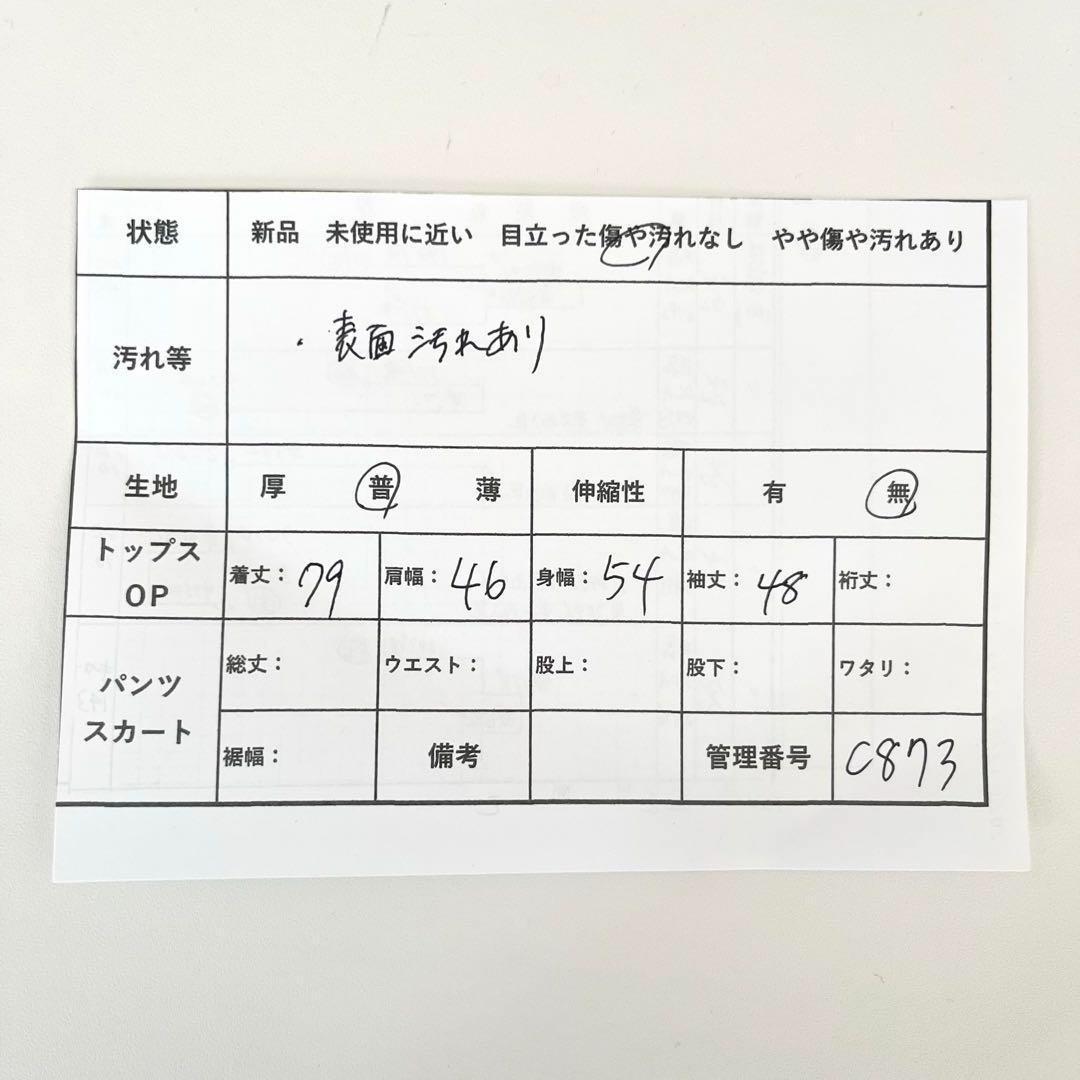 状態 新品 未使用に近い 目立った傷や汚れなし やや傷や汚れあり
汚れ等 ・表面汚れあり
生地 厚 普 薄 伸縮性 有 無
トップス
OP
着丈：79 肩幅：46 身幅：54 袖丈：48 裄丈：
パンツ
スカート
総丈： ウエスト： 股上： 股下： ワタリ：
裾幅： 備考 管理番号 C873